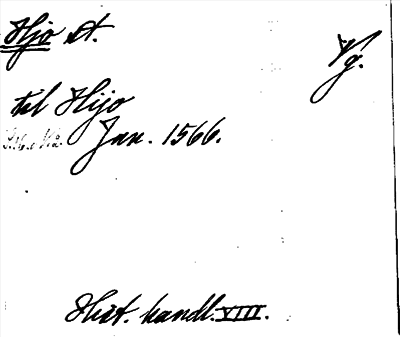 Hjo st.
Vg.
til Hijo
Jan. 1566.
Hist. handl. VIII.